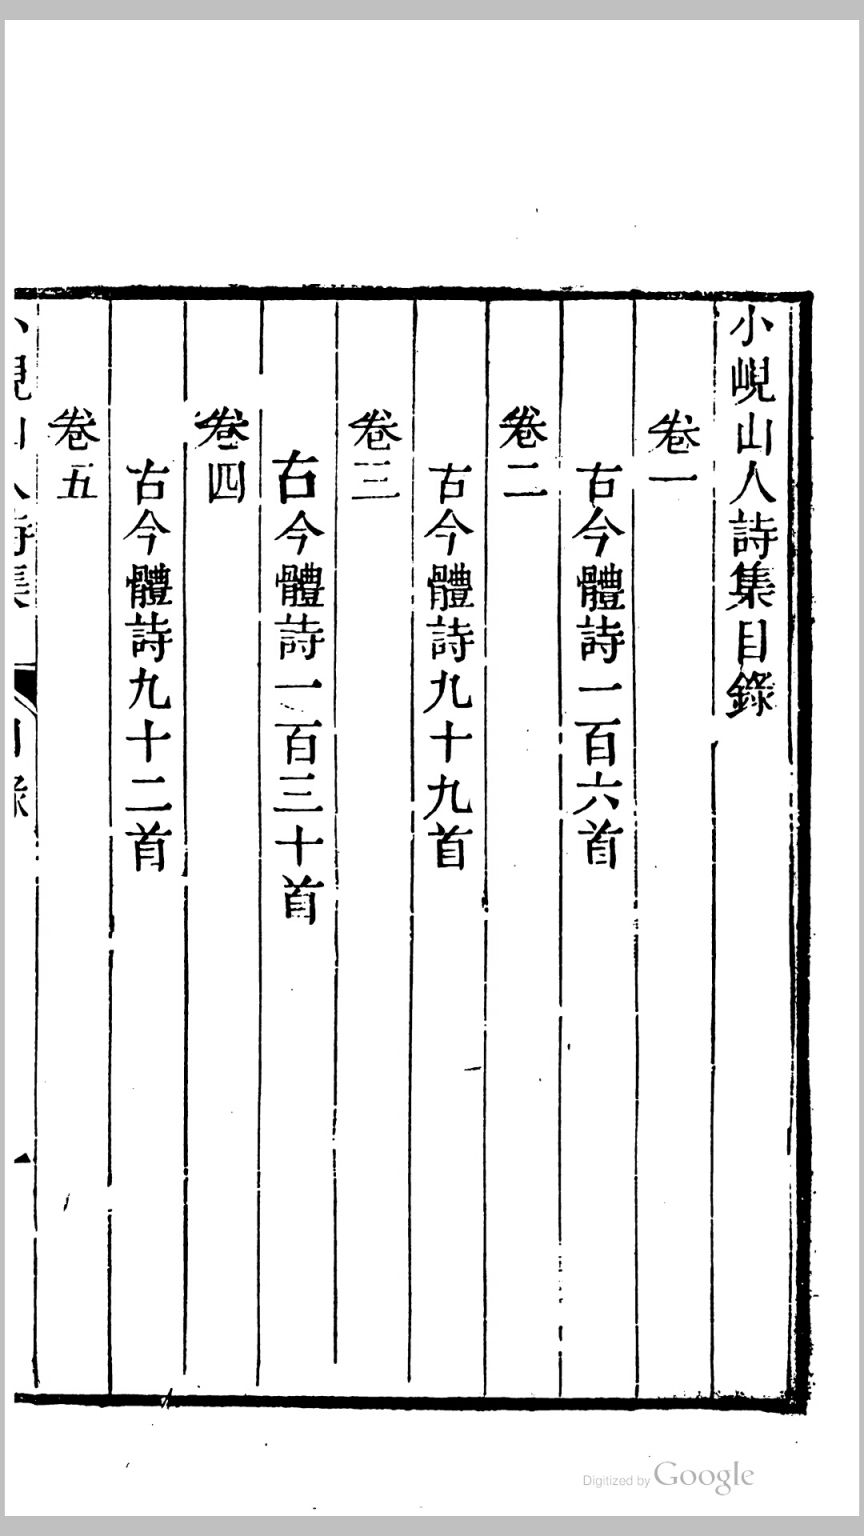 小峴山人詩集目錄
卷一
古今體詩一百六首
卷二
古今體詩九十九首
卷三
古今體詩一百三十首
卷四
古今體詩九十二首
卷五
Digitized by Google